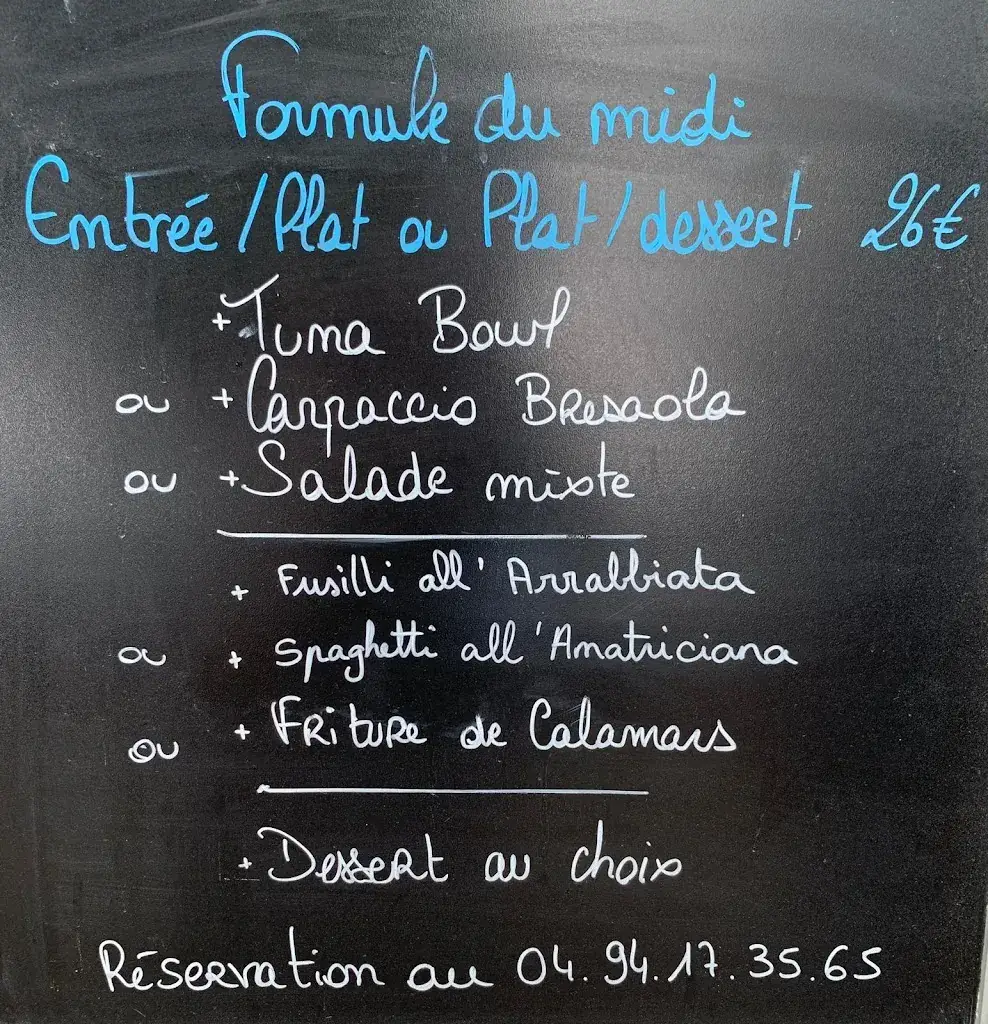 Formule du midi
Entrée/Plat ou Plat/dessert 26€
+ Tuna Bowl
ou + Carpaccio Bresaola
ou + Salade mixte
+ Fusilli all'Arrabbiata
ou + Spaghetti all'Amatriciana
ou + Friture de Calamars
+ Dessert au choix
Réservation au 04.94.17.35.65